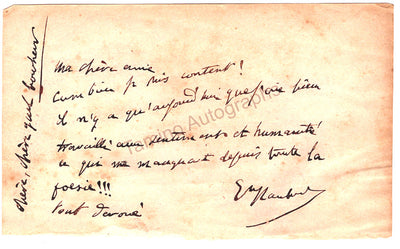 Ma chère amie
Combien je suis content!
il n'y a qu'aujourd'hui que j'aie bien
travaillé aux sentiments et humanité
ce qui me manquait depuis toute la
poésie!!!
tout dévoué
chère, chère quel bonheur
Tamino Autographs